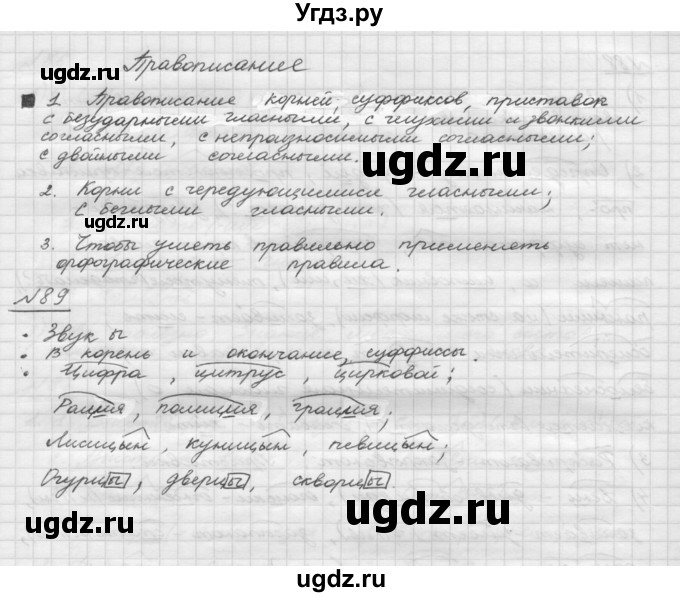 Угдз.ру
Правописание
ugdz.ru
1. Правописание корней, суффиксов, приставок
с безударными гласными, с глухими и звонкими
согласными, с непроизносимыми согласными;
с двойными согласными.
ugdz.ru
2. Корни с чередующимися гласными;
с беглыми гласными.
ugdz.ru
3. Чтобы уметь правильно применять
орфографические правила.
ugdz.ru
№89
• Звук ы
• В корень и окончание, суффиссы.
• Цифра, цитрус, цирковой;
Рация, полиция, грация;
ugdz.ru
Лисицын, куницын, певицын;
Огурцы, дверцы, скворцы.
ugdz.ru
ugdz.ru
ugdz.ru